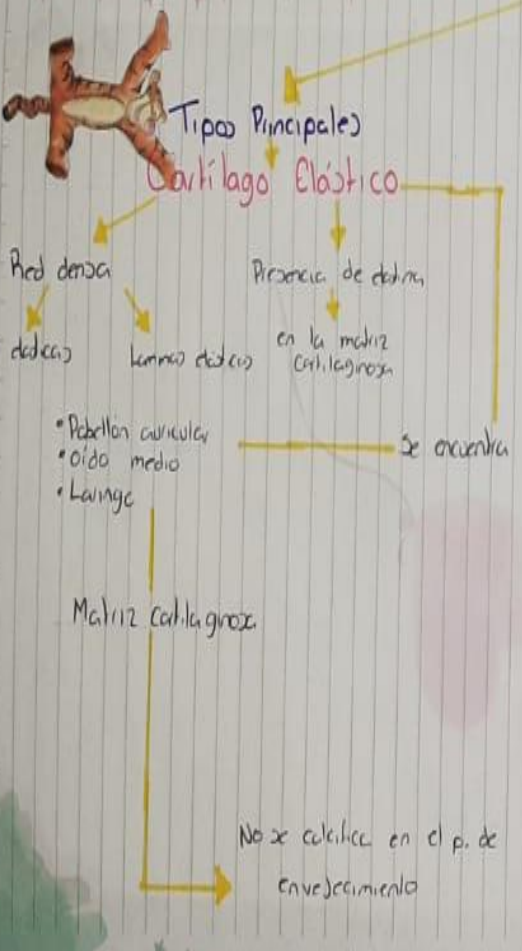 Tipos Principales
Cartílago Elástico
Red densa
Presencia de elastina
elásticas
Laminas elásticas
en la matriz
Cartilaginosa
• Pabellón auricular
• Oído medio
• Laringe
Se encuentra
Matriz Cartilaginosa
No se calcifica en el p. de
envejecimiento